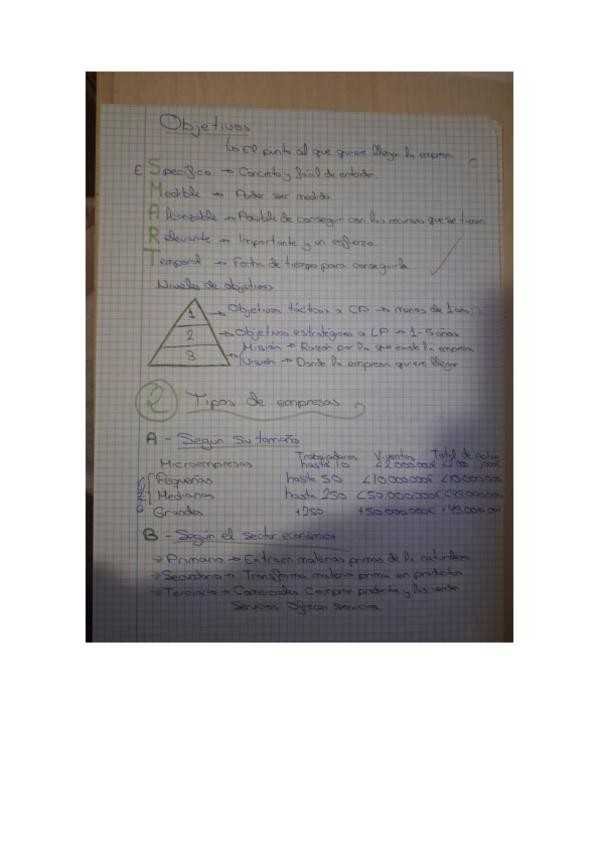 Objetivos
↳ El punto al que quiere llegar la empresa
E Specífico → Concreto y fácil de entender
Medible → Poder ser medido
Alcanzable → Posible de conseguir con los recursos que se tienen
Relevante → Importante y un esfuerzo
Temporal → Fecha de tiempo para conseguirla
Niveles de objetivos
1 → Objetivos tácticos a CP → menos de 1 año
2 → Objetivos estratégicos a LP → 1-5 años
3 → Misión → Razón por la que existe la empresa
Visión → Donde la empresa quiere llegar
2 Tipos de empresas
A - Segun su tamaño
Trabajadores V.ventas Total de Activo
Microempresas hasta 10 <2.000.000€
Pequeñas hasta 50 <10.000.000€ <10.000.000€
Medianas hasta 250 <50.000.000€ <43.000.000
Grandes +250 +50.000.000€ +43.000.000
B - Según el sector económico
→ Primario → Extraen materias primas de la naturaleza
→ Secundario → Transforma materia prima en productos
→ Terciario → Comerciales Compran producto y los venden
Servicios Ofrecen servicios